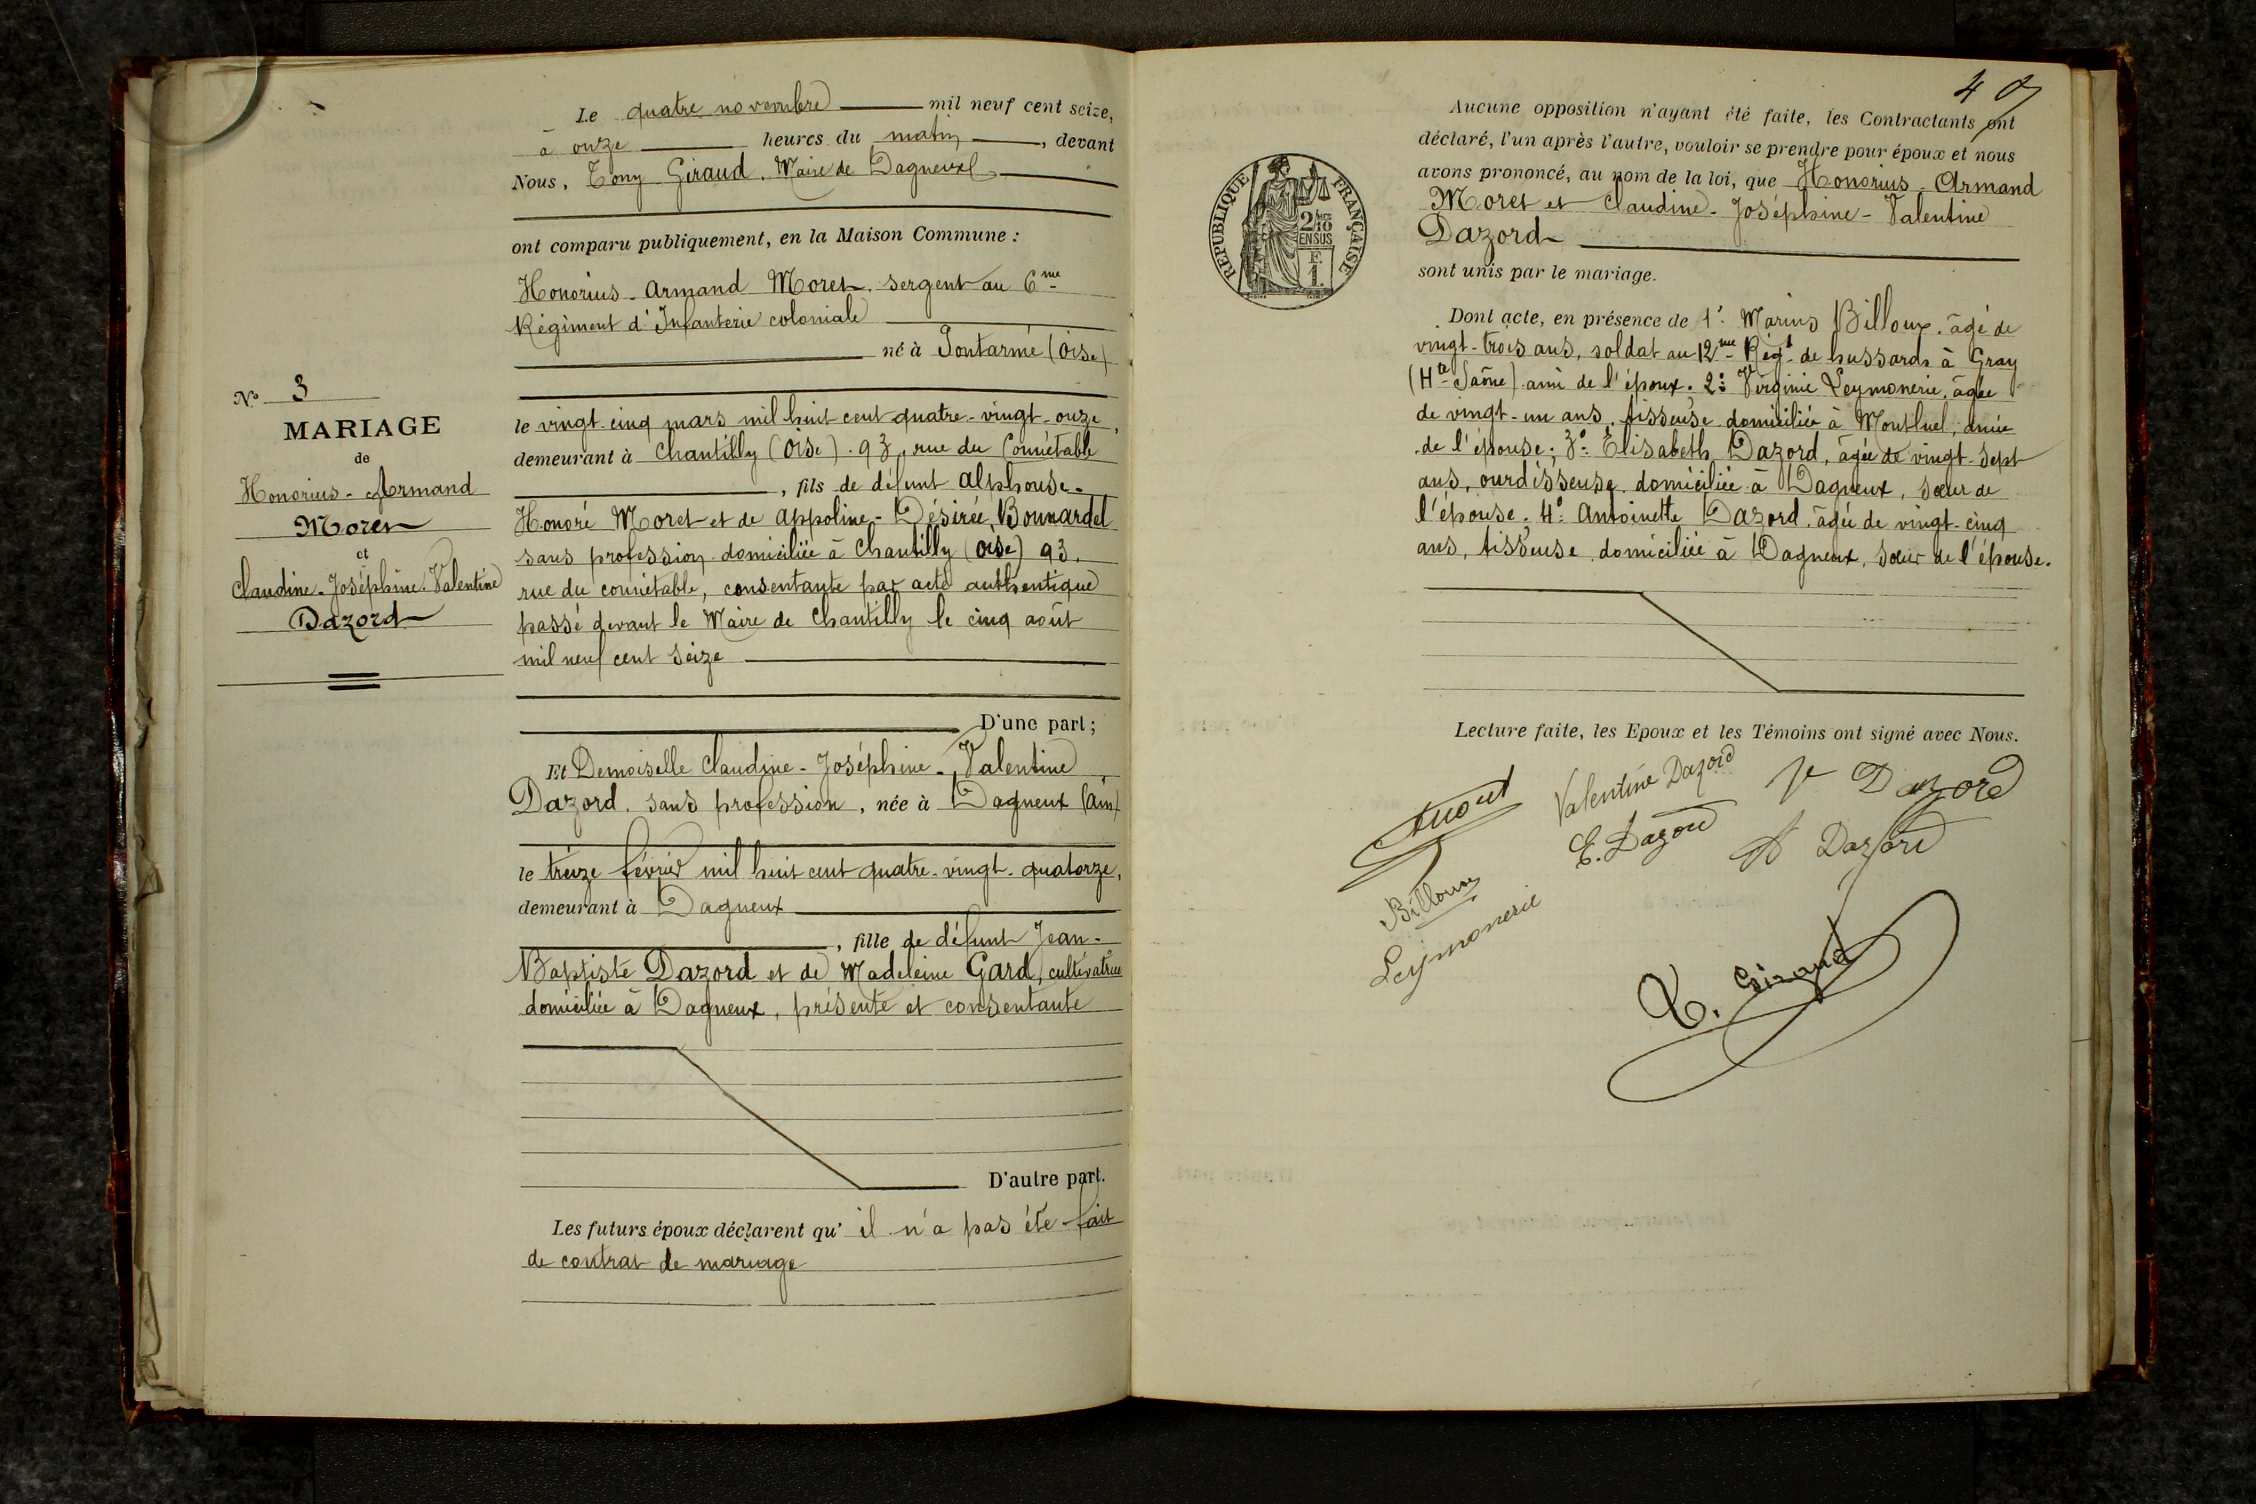 Le quatre novembre mil neuf cent seize,
à onze heures du matin, devant
Nous, Tony Giraud, Maire de Dagneux
ont comparu publiquement, en la Maison Commune :
Honorius-Armand Moret, sergent au 6me
Régiment d'Infanterie coloniale
né à Pontarmé (Oise)
le vingt-cinq mars mil huit cent quatre-vingt-onze,
demeurant à Chantilly (Oise). 93, rue du Connétable
, fils de défunt Alphonse-
Honoré Moret et de Appoline-Désirée Bonnardel
sans profession domiciliée à Chantilly (Oise) 93,
rue du connétable, consentante par acte authentique
passé devant le Maire de Chantilly le cinq août
mil neuf cent seize
D'une part;
Et Demoiselle Claudine-Joséphine-Valentine
Dazord, sans profession, née à Dagneux (Ain)
le treize février mil huit cent quatre-vingt-quatorze,
demeurant à Dagneux
, fille de défunt Jean-
Baptiste Dazord et de Madeleine Gard, cultivatrice
domiciliée à Dagneux, présente et consentante
D'autre part.
Les futurs époux déclarent qu' il n'a pas été fait
de contrat de mariage
No 3
MARIAGE
de
Honorius-Armand
Moret
et
Claudine-Joséphine-Valentine
Dazord
Aucune opposition n'ayant été faite, les Contractants ont
déclaré, l'un après l'autre, vouloir se prendre pour époux et nous
avons prononcé, au nom de la loi, que Honorius-Armand
Moret et Claudine-Joséphine-Valentine
Dazord
sont unis par le mariage.
Dont acte, en présence de 1° Marius Billoux, âgé de
vingt-trois ans, soldat au 12me Régt de hussards à Gray
(Hte Saône) ami de l'époux. 2° Virginie Leymonerie, âgée
de vingt-un ans, tisseuse domiciliée à Montluel, amie
de l'épouse; 3° Elisabeth Dazord, âgée de vingt-sept
ans, ourdisseuse, domiciliée à Dagneux, sœur de
l'épouse. 4° Antoinette Dazord, âgée de vingt-cinq
ans, tisseuse domiciliée à Dagneux, sœur de l'épouse.
Lecture faite, les Epoux et les Témoins ont signé avec Nous.
Valentine Dazord
Dazord
E. Dazord
A Dazord
Billoux
Leymonerie
T. Giraud
RÉPUBLIQUE FRANÇAISE
2/10
EN SUS
F.
1.